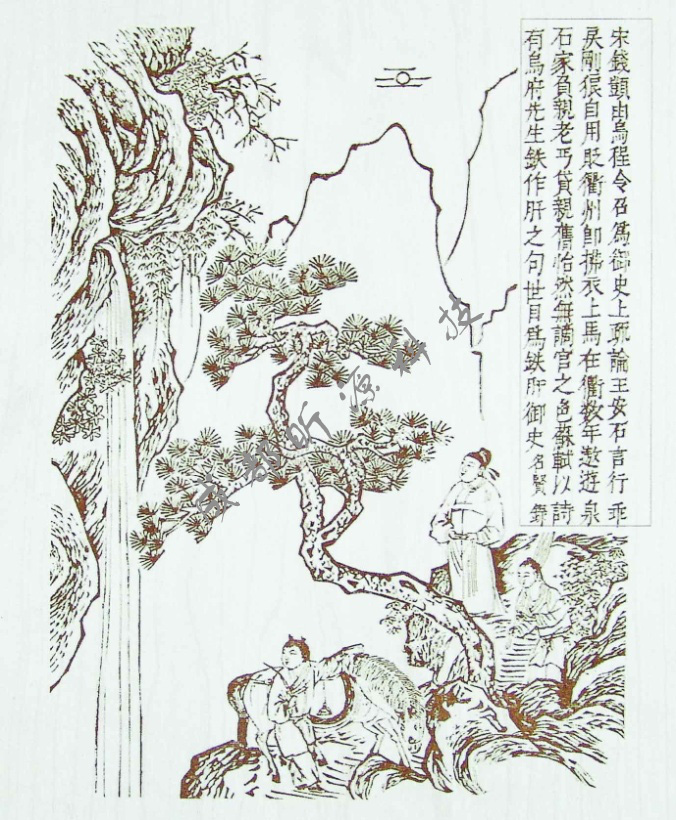 宋錢顗由烏程令召爲御史上疏論王安石言行乖
戾剛狠自用貶衢州即拂衣上馬在衢数年遨遊泉
石家負親老丐貸親舊怡然無謫官之色蘇軾以詩
有烏府先生鉄作肝之句世目爲鉄肝御史名賢錄
都昕源科技